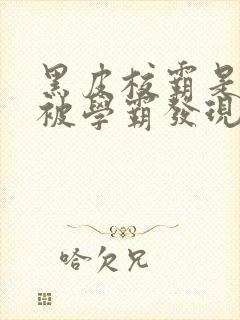 黑皮校霸是
被學霸發現
哈欠兄